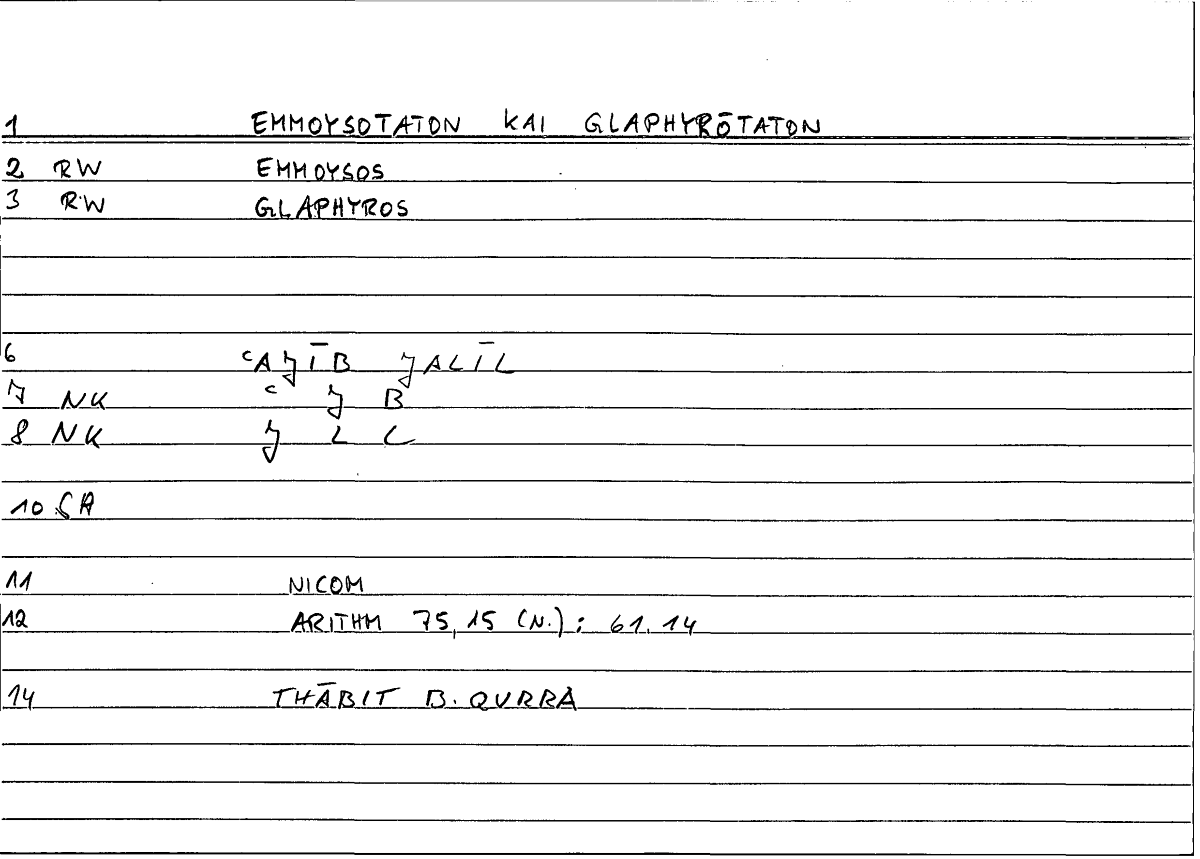 1 EMMOYSOTATON KAI GLAPHYRŌTATON
2 RW EMMOYSOS
3 RW GLAPHYROS
6 ᶜAǧĪB ǧALĪL
7 NK ᶜ ǧ B
8 NK ǧ L L
10 SA
11 NICOM
12 ARITHM 75,15 (N.): 61.14
14 THĀBIT B. QURRA